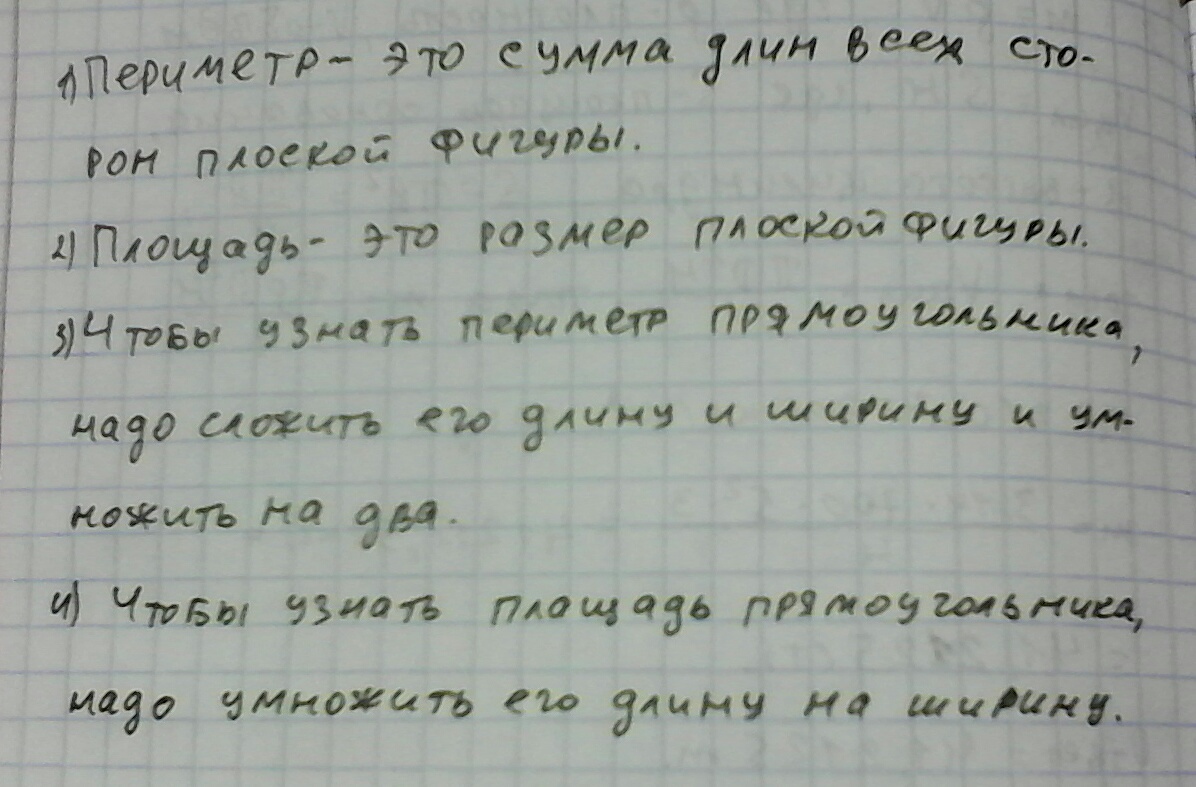 1) Периметр - это сумма длин всех сто-
рон плоской фигуры.
2) Площадь - это размер плоской фигуры.
3) Чтобы узнать периметр прямоугольника,
надо сложить его длину и ширину и ум-
ножить на два.
4) Чтобы узнать плащадь прямоугольника,
надо умножить его длину на ширину.